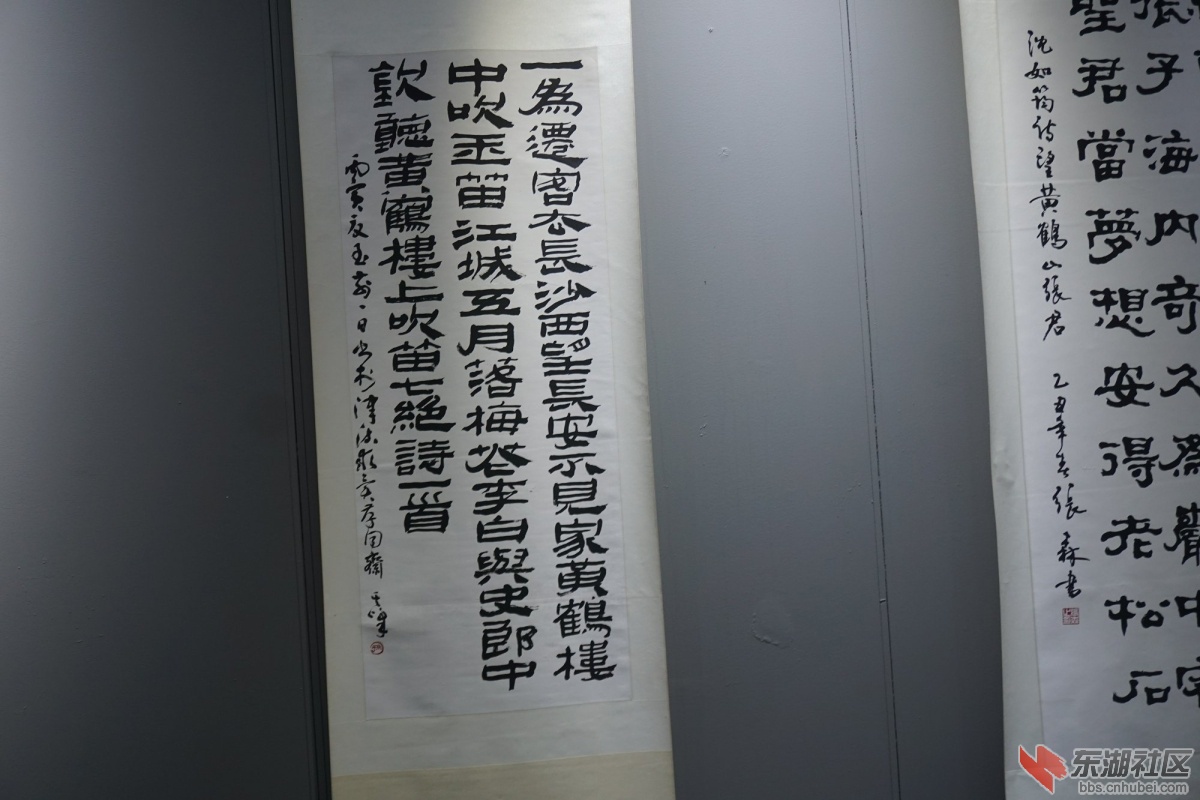 張子海內奇久為巖中
聖君當夢想安得老松石
沈如筠詩望黃鶴山張君 乙丑年春張森書
一為遷客去長沙西望長安不見家黃鶴樓
中吹玉笛江城五月落梅花李白與史郎中
欽聽黃鶴樓上吹笛七絕詩一首
丙寅夏 一日書於津沽 齋 其峰
东湖社区
bbs.cnhubei.com